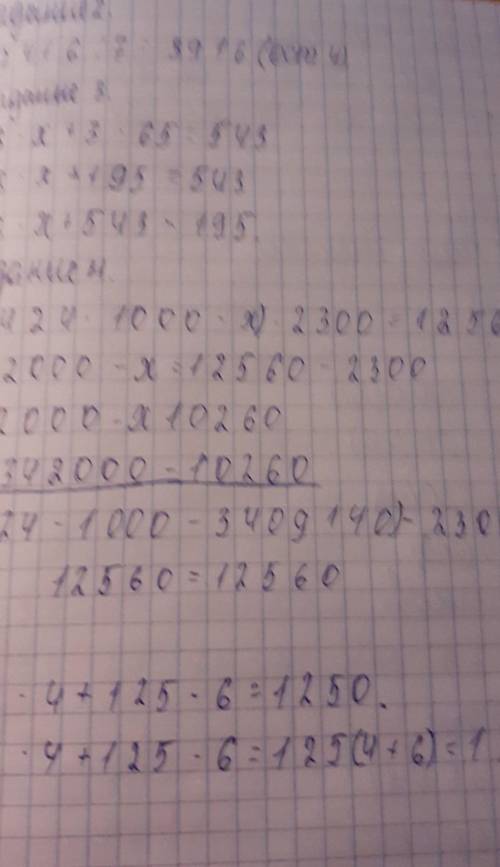 6 : 7 = 8916 (ост 4)
х + 3 · 65 = 543
х + 195 = 543
х + 543 - 195.
424 · 1000 - х) · 2300 = 1256
2000 - х = 12560 - 2300
2000 - х 10260
342000 - 10260
24 - 1000 - 3409140) - 230
12560 = 12560
· 4 + 125 · 6 = 1250.
· 4 + 125 · 6 = 125(4 + 6) = 1